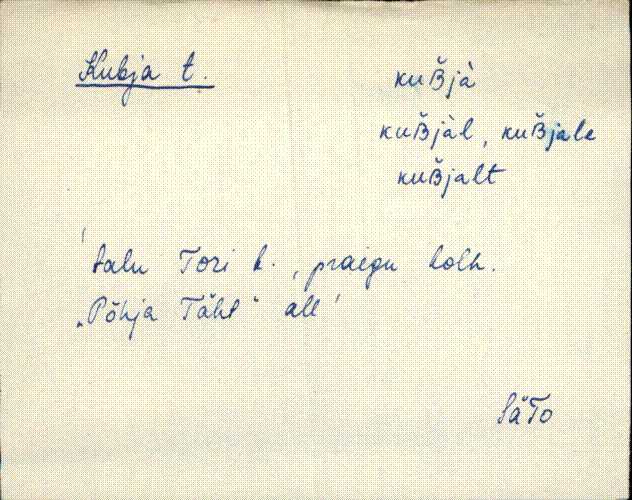 Kubja t. kuB̆jà
kuB̆jàl, kuB̆jale
kuB̆jalt
'talu Tori k., praegu kolh.
„Põhja Täht“ all'
SäTo